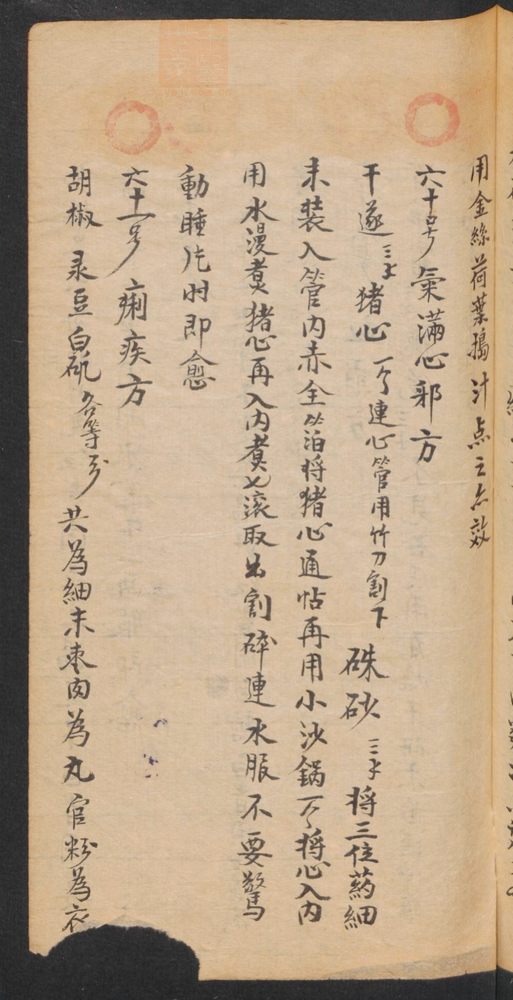 用金絲荷葉搗汁点之亦效
六十号氣滿心邪方
干遂三錢 猪心一个連心管用竹刀割下 硃砂三錢 将三位葯細
末装入管内赤金箔将猪心通帖再用小沙鍋一个将心入内
用水漫煮猪心再入内煮七滚取出割碎連水服不要驚
動睡片时即愈
六十一号痢疾方
胡椒 菉豆 白矾各等分 共為細末枣肉為丸官粉為衣